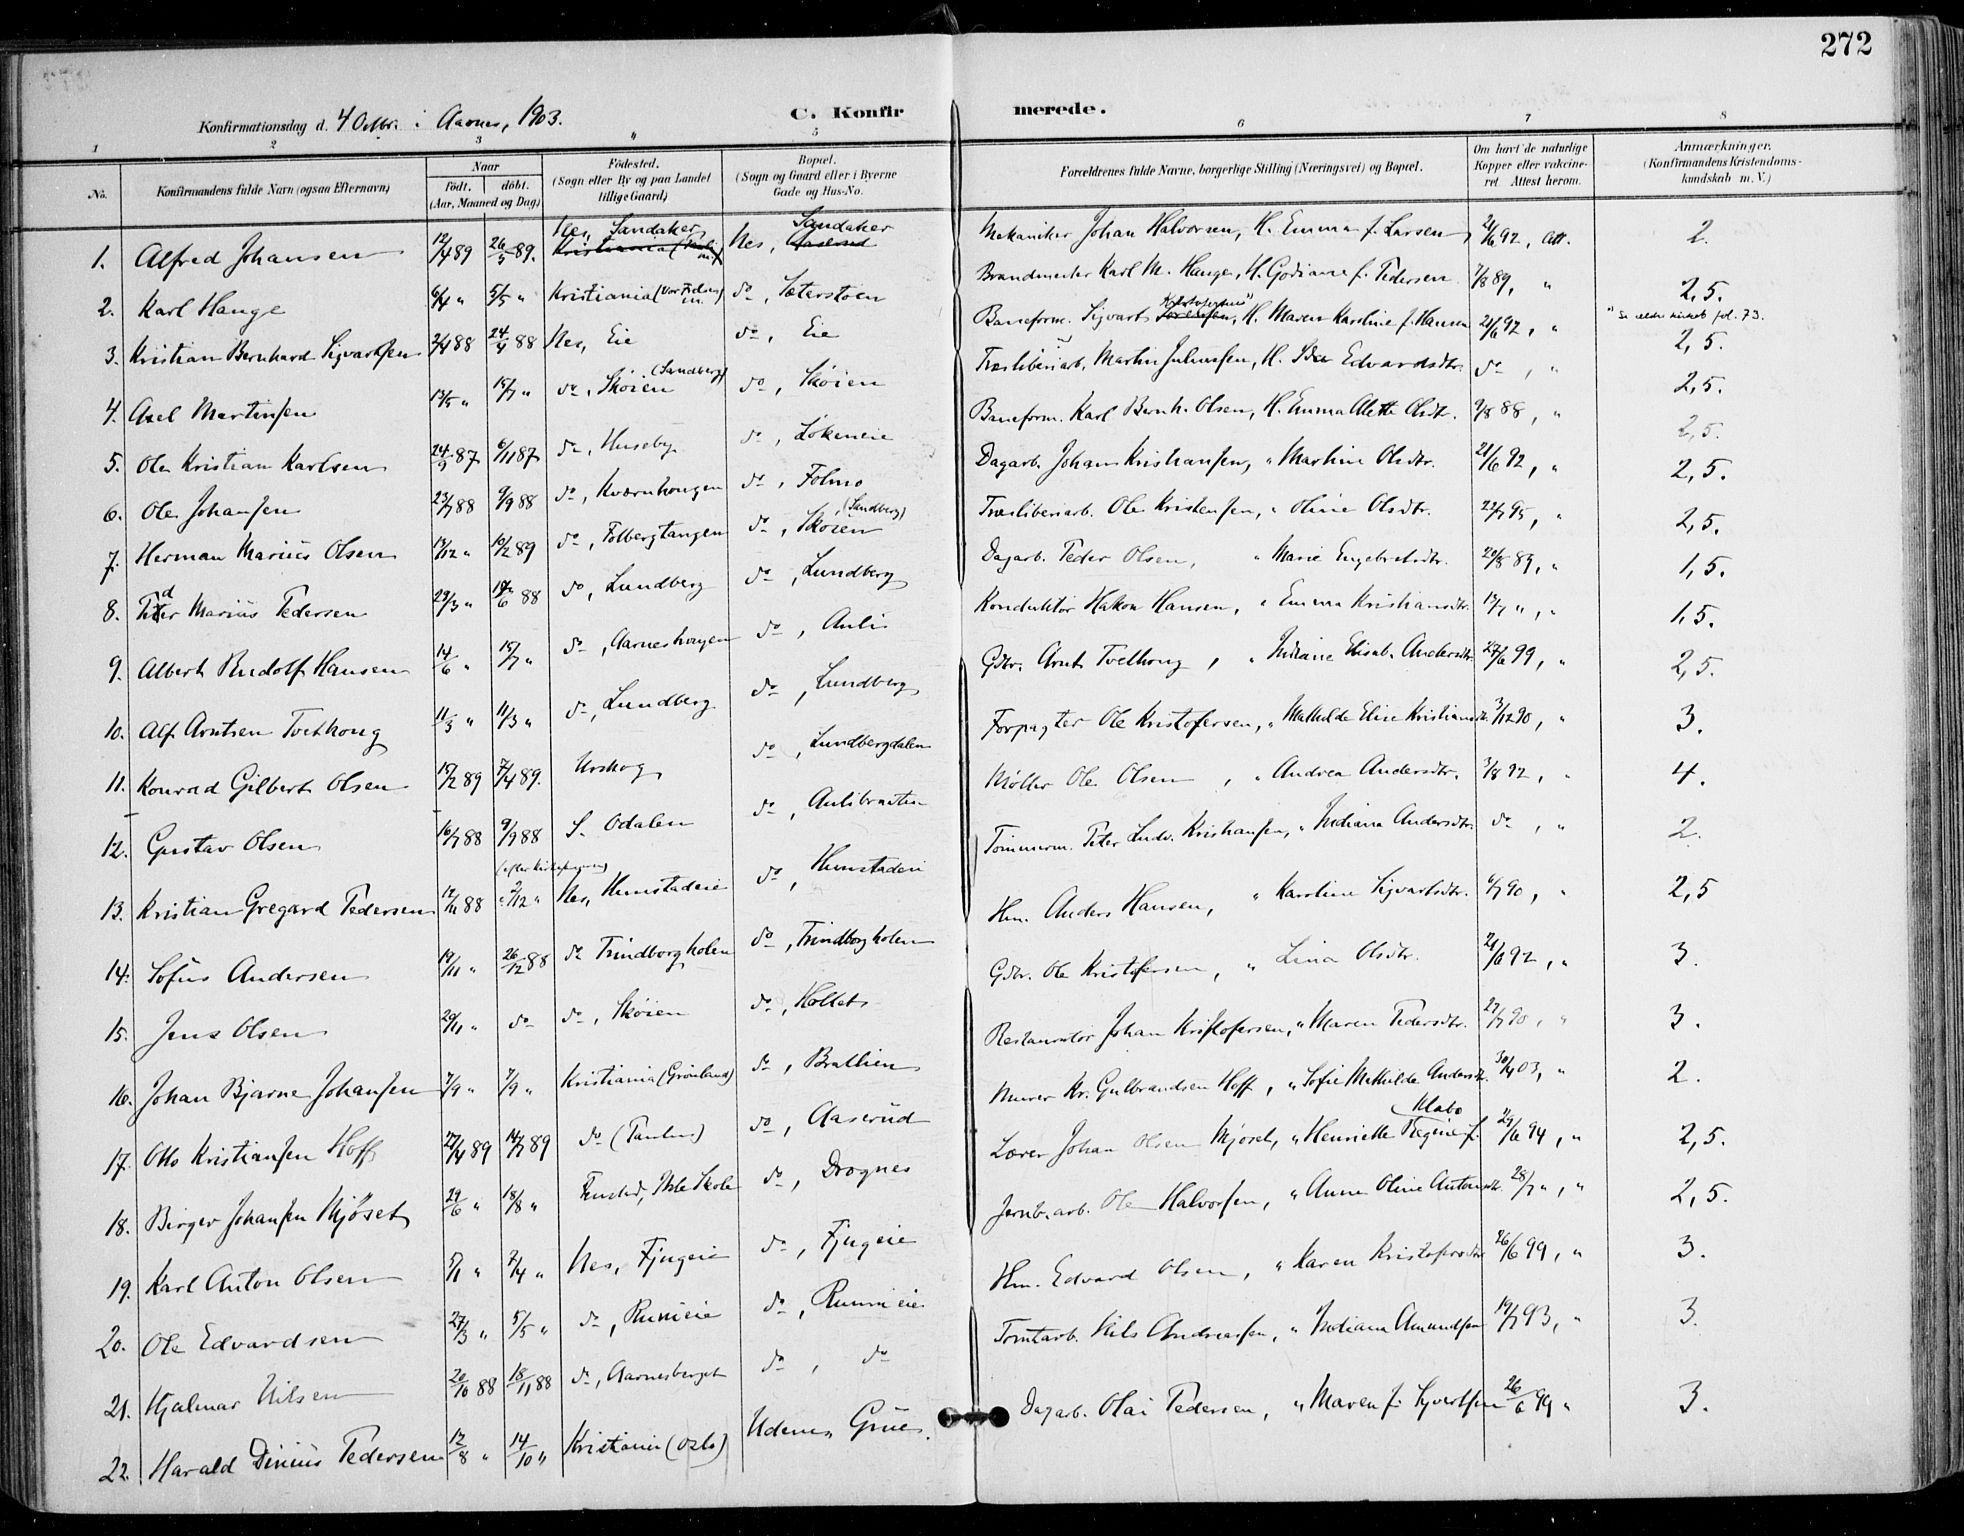 272
Konfirmationsdag d. 4 Octbr. i Aarnes, 1903.
C. Konfirmerede.
1 2 3 4 5 6 7 8
No. Konfirmandens fulde Navn (ogsaa Efternavn) Naar født. døbt. (Aar, Maaned og Dag) Fødested. (Sogn eller By og paa Landet tillige Gaard) Bopæl. (Sogn og Gaard eller i Byerne Gade og Hus-No. Forældrenes fulde Navne, borgerlige Stilling (Næringsvei) og Bopæl. Om havt de naturlige Kopper eller vaccineret. Attest herom. Anmærkninger. (Konfirmandens Kristendomskundskab m. V.)
1. Alfred Johansen 12/4 89 26/5 89. Nes, Sandaker Kristiania Nes, Sandaker Mekaniker Johan Halvorsen, H. Emma f. Larsen 21/6 92, Att. 2.
2. Karl Hauge 6/4 " 5/5 " Kristiania (Vor Frelsers m.) do, Sæterstøen Brandmester Karl M. Hauge, H. Godiane f. Pedersen 7/8 89, " 2,5.
3. Kristian Bernhard Sigvartsen 2/4 88 24/4 88 Nes, Eie do, Eie Baneform. Sigvart Sørensen, Kristofersen H. Maren Karoline f. Hansen 21/6 92, " 2,5. fol. 73.
4. Axel Martinsen 13/5 " 15/7 " do, Skøien (Sandberg) do, Skøien Træsliberiarb. Martin Juliussen, H. Edvardsdtr. do, " 2,5.
5. Ole Kristian Karlsen 24/9 87 6/11 87 do, Huseby do, Løkeneie Baneform. Karl Bernh. Olsen, H. Emma Alette Olsdtr. 9/8 88, " 2,5.
6. Ole Johansen 23/7 88 9/9 88 do, Kværnhougen do, Folmo Dagarb. Johan Kristiansen, " Martine Olsdtr. 21/6 92, " 2,5.
7. Herman Marius Olsen 13/12 " 10/2 89 do, Folbergtangen do, Skøien (Sandberg) Træsliberiarb. Ole Kristensen, " Oline Olsdtr. 22/7 95, " 2,5.
8. Peder Marius Pedersen 29/3 " 6 88 do, Lundberg do, Lundberg Dagarb. Peder Olsen, " Marie Engebretsdtr. 20/8 89, " 1,5.
9. Albert Rudolf Hansen 14/6 " 15/7 " do, Aarneshougen do, Auli Konduktør Hakon Hansen, " Emma Kristiansdtr. 13/7 ", " 1,5.
10. Alf Arntsen Tvethoug 11/3 " 11/3 " do, Lundberg do, Lundberg Gdbr. Arnt Tvethoug, " Indiane Elisab. Andersdtr. 27/6 99, " 2,5.
11. Konrad Gilbert Olsen 15/2 89 7/4 89. Urskog do, Lundbergdalen Forpagter Ole Kristofersen, " Mathilde Elise Kristiansdtr. 3/12 90, " 3.
12. Gustav Olsen 16/7 88 9/9 88 S. Odalen do, Aulibraaten Møller Ole Olsen, " Andrea Andersdtr. 3/8 92, " 4.
13. Kristian Gregard Pedersen 12/11 88 2/12 " Nes, Hemstadeie do, Hemstadeie Tømmerm. Peter Ludv. Kristiansen, " Indiana Andersdtr. do, " 2.
14. Sofus Andersen 19/11 " 26/12 88 do Trindborgholen do, Trindborgholen Hm. Anders Hansen, " Karoline Sigvartsdtr. 6/7 90, " 2,5
15. Jens Olsen 29/11 " do do, Skøien do, Hollet Gdbr. Ole Kristofersen, " Lina Olsdtr. 21/6 92, " 3.
16. Johan Bjarne Johansen 7/9 " 7/9 " Kristiania (Grønland) do, Brattlien Restauratør Johan Kristofersen, " Maren Pedersdtr. 27/7 90, " 3.
17. Otto Kristiansen Hoff 27/4 89 14/7 89 do (Paulus) do, Aaserud Murer Kr. Gulbrandsen Hoff, " Sofie Mathilde Andersdtr. 30/4 03, " 2.
18. Birger Johansen Mjøset 29/6 " 18/8 " do, Drognes Lærer Johan Olsen Mjøset, " Henriette Regine f. Klabo 29/6 94, " 2,5.
19. Karl Anton Olsen 5/1 " 7/4 " Nes, Fjugeie do, Fjugeie Jernb.arb. Ole Halvorsen, " Anne Oline Antonsdtr. 28/7 ", " 2,5.
20. Ole Edvardsen 27/3 " 5/5 " do, Runieie do, Runnieie Hm. Edvard Olsen, " Karen Kristofersdtr. 26/6 99, " 3.
21. Hjalmar Nilsen 20/10 88 18/11 88 do, Aarnesberget do, do Tomtarb. Nils Andreassen, " Indiana Amundsen 19/7 93, " 3.
22. Harald Dinius Pedersen 12/8 " 14/10 " Kristiania (Oslo) Udenes, Grue. Dagarb. Olai Pedersen, " Maren f. Syvertsen 26/6 99 " 3.